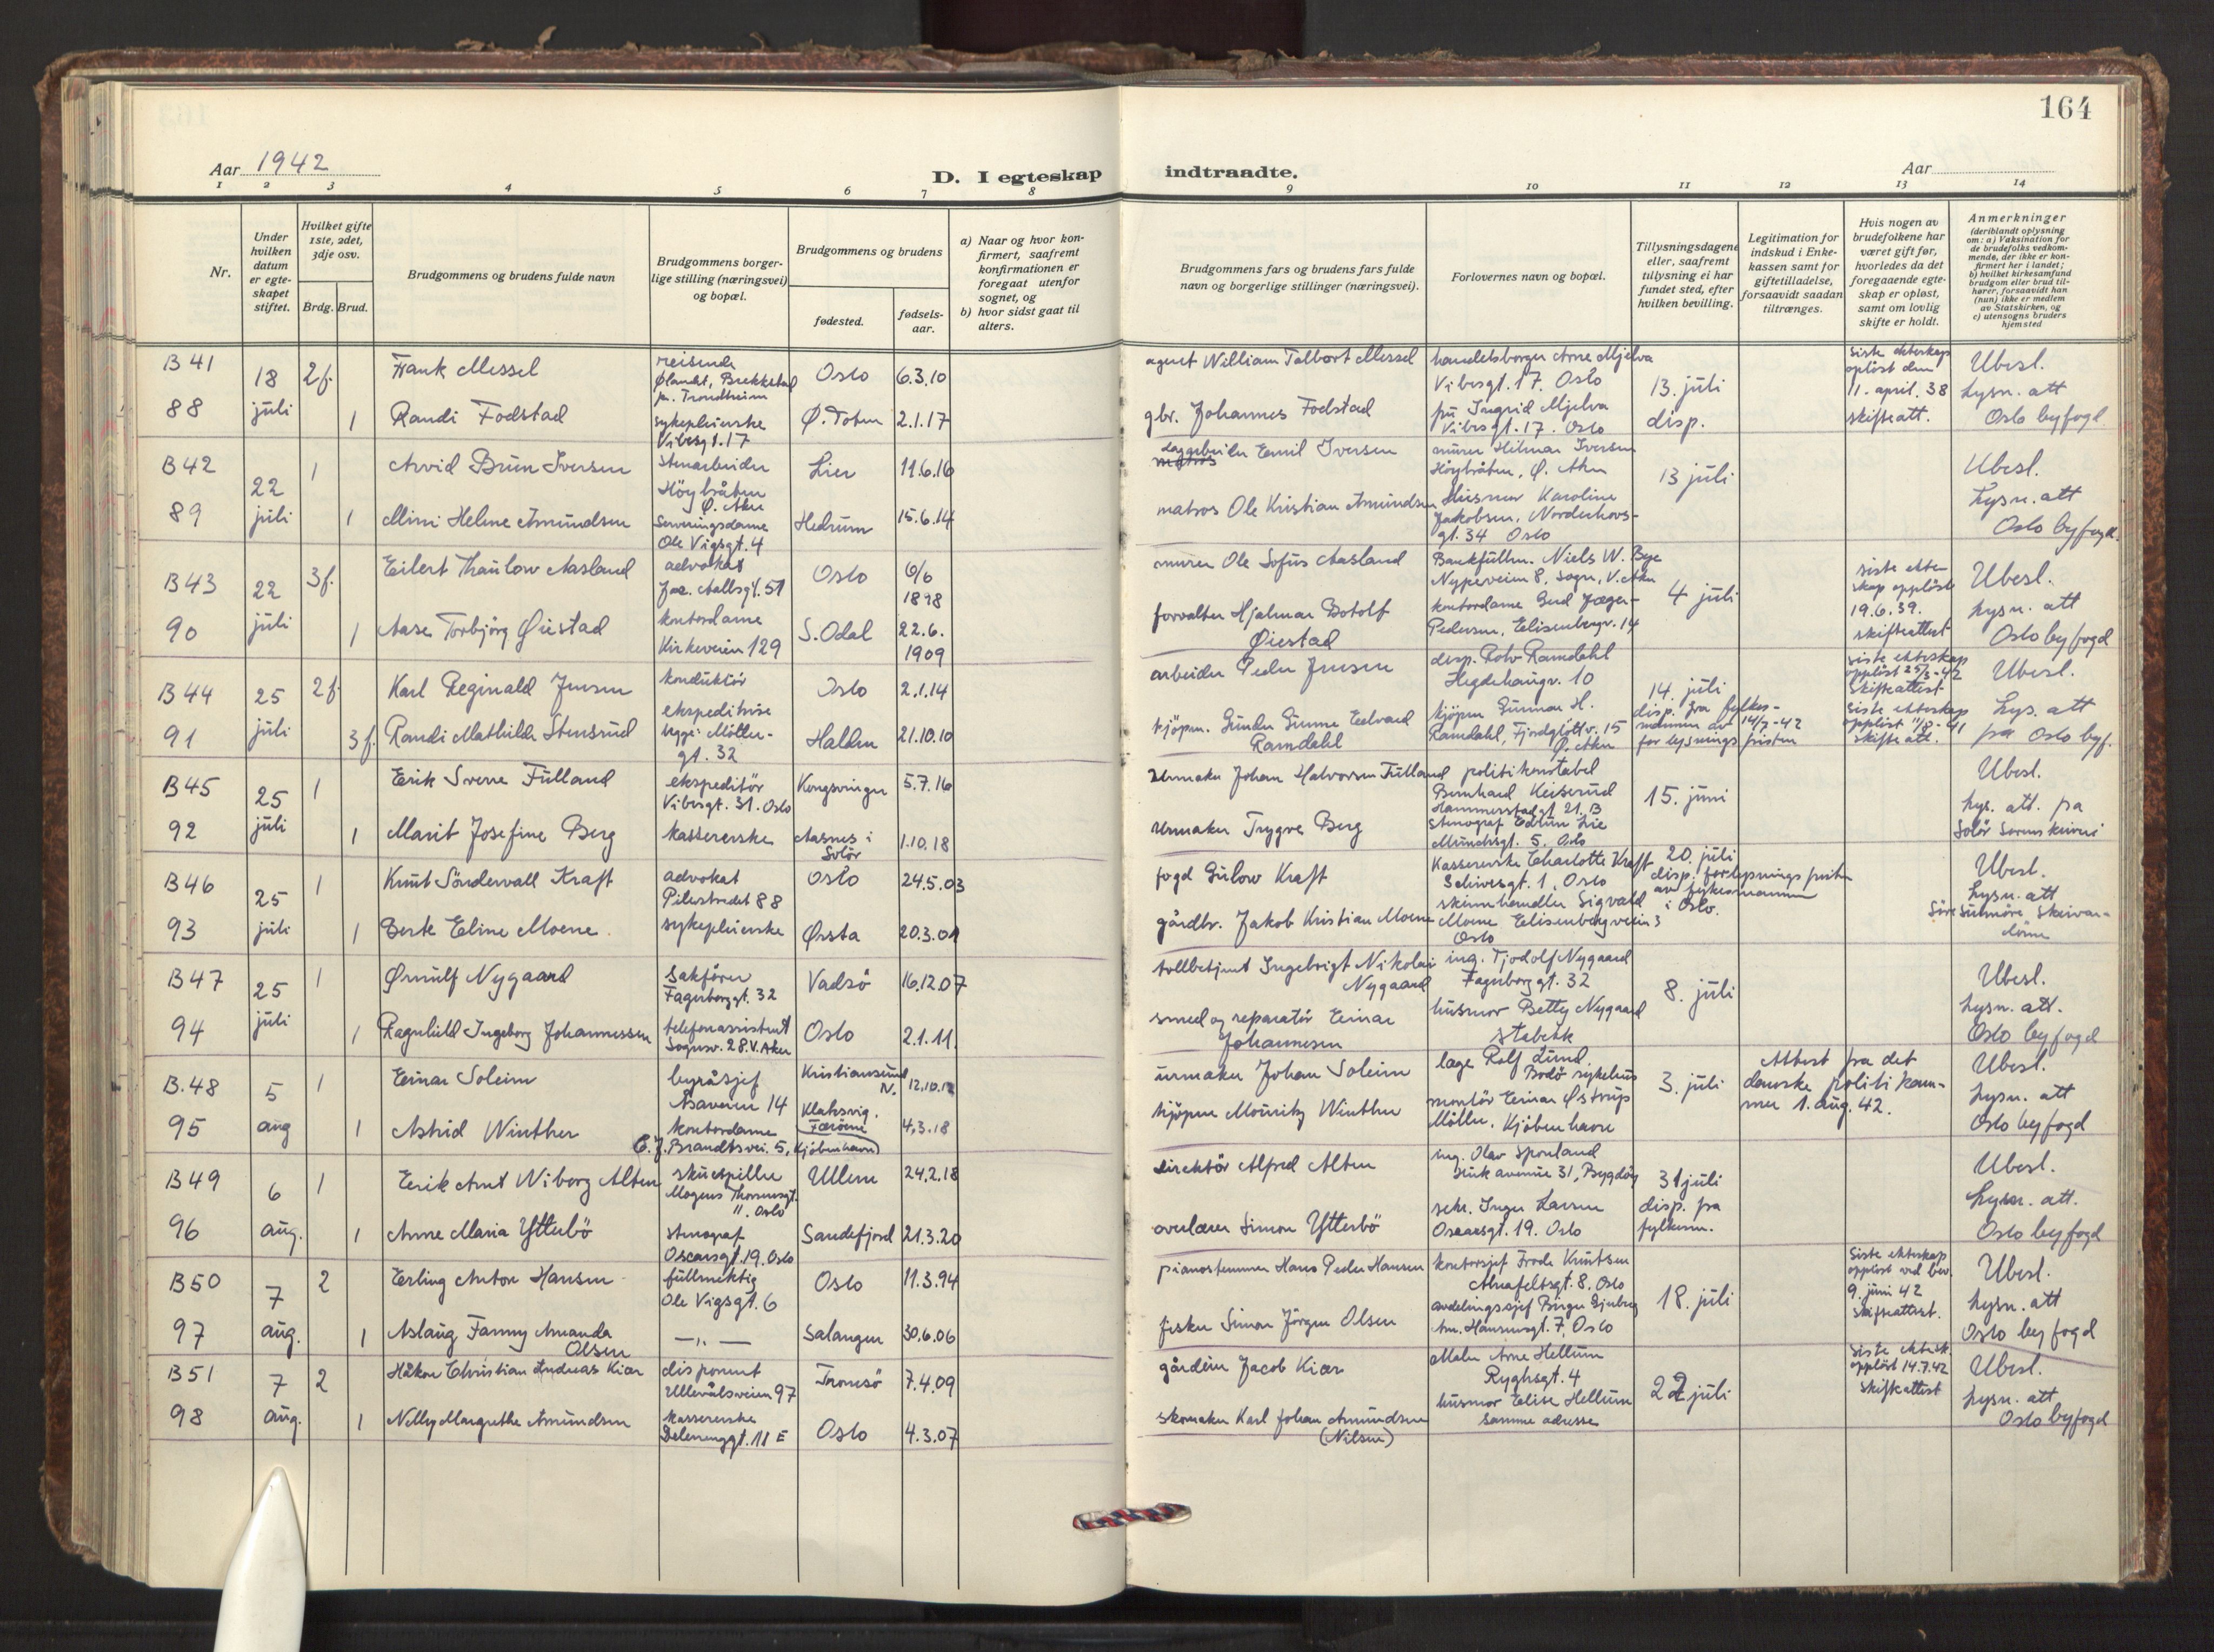 164
Aar 1942
D. I egteskap indtraadte.
Aar
1 2 3 4 5 6 7 8 9 10 11 12 13 14
Nr.
Under hvilken datum er egteskapet stiftet.
Hvilket gifte 1ste, 2det, 3dje osv.
Brdg. Brud.
Brudgommens og brudens fulde navn
Brudgommens borgerlige stilling (næringsvei) og bopæl.
Brudgommens og brudens
fødested.
fødselsaar.
a) Naar og hvor konfirmert, saafremt konfirmationen er foregaat utenfor sognet, og
b) hvor sidst gaat til alters.
Brudgommens fars og brudens fars fulde navn og borgerlige stillinger (næringsvei).
Forlovernes navn og bopæl.
Tillysningsdagene eller, saafremt tillysning ei har fundet sted, efter hvilken bevilling.
Legitimation for indskud i Enkekassen samt for giftetilladelse, forsaavidt saadan tiltrænges.
Hvis nogen av brudefolkene har været gift før, hvorledes da det foregaaende egteskap er opløst, samt om lovlig skifte er holdt.
Anmerkninger
(deriblandt oplysning om: a) Vaksination for de brudefolks vedkommende, der ikke er konfirmert her i landet;
b) hvilket kirkesamfund brudgom eller brud tilhører, forsaavidt han (hun) ikke er medlem av Statskirken, og
c) utensogns bruders hjemsted
B 41
88
18 juli
2f.
Frank Messel
reisende
Ølandet, Brekkstad
p. Trondheim
Oslo 6.3.10
agent William Talbort Messel
handelsborger Arne Mjelva
Vibesgt. 17. Oslo
13. juli
disp.
siste ekteskap
oplöst den
11. april. 38
skifteatt.
Ubesl.
lysn. att
Oslo byfogd
1
Randi Fodstad
sykepleierske
Vibesgt. 17
Ø. Toten 2.1.17
gbr. Johannes Fodstad
fru Ingrid Mjelva
Vibesgt. 17. Oslo
B 42
89
22 juli
1
Arvid Brun Iversen
stenarbeider
Höybråten
Ø. Aker
Lier 11.6.16
Emil Iversen
murer Hilmar Iversen
Höybråten, Ø. Aker
13 juli
Ubesl.
Lysn. att
Oslo byfogd.
1
Mimi Helene Amundsen
Serveringsdame
Ole Vigsgt. 4
Hedrum 15.6.14
matros Ole Kristian Amundsen
Husmor Karoline
Jakobsen, Norderhovs-
gt. 34 Oslo
B43
90
22 juli
3f.
Eilert Thaulow Aasland
advokat
Jac. Aallsgt. 51
Oslo 6/6 1898
murer Ole Sofus Aasland
Bankfullm. Niels W. Bye
Nyperveien 8, Sogn, V. Aker
4 juli
siste ekte-
skap opplöst
19.6.39.
skifteattest
Ubesl.
lysn. att
Oslo byfogd
1
Aase Torbjörg Øiestad
kontordame
Kirkeveien 129
S. Odal 22.6. 1909
forvalter Hjalmar Botolf
Øiestad
kontordame Gerd Jæger-
Pedersen, Elisenbergv. 14
B44
91
25 juli
2f.
Karl Reginald Jensen
konduktör
Oslo 2.1.14
arbeider Peder Jensen
disp. Rolv Ramdahl
Hegdehaugv. 10
14. juli
disp. fra fylkes-
mannen av 14/7-42
for lysningsfristen
siste ekteskap
opplöst 25/3-42
skifteattest
Ubesl.
Lys. att
fra Oslo byf.
3f.
Randi Mathilde Stensrud
ekspeditrise
Möller-
gt. 32
Halden 21.10.10
kjöpm. Gunder Gunne Edvard
Ramdahl
kjöpm Gunnar H.
Ramdahl, Fjordglöttv. 15
Ø. Aker
siste ekteskap
opplöst 11/8-41
skifte att.
B45
92
25 juli
1
Erik Sverre Fulland
ekspeditör
Vibesgt. 31. Oslo
Kongsvinger 5.7.16
Urmaker Johan Halvorsen Fulland
politikonstabel
Bernhard Keiserud
Hammerstadgt 21. B
15. juni
Ubesl.
lys. att. fra
Solör Sorenskriveri
1
Marit Josefine Berg
kassererske
Aasnes i
Solör
1.10.18
Urmaker Trygve Berg
stenograf Edrun Lie
Munchsgt. 5. Oslo
B46
93
25 juli
1
Knut Söndervall Kraft
advokat
Pilestredet 88
Oslo 24.5.03
fogd Gulow Kraft
Kassererske Charlotte Kraft
Schivesgt. 1, Oslo
20. juli
disp. for lysningsfristen
av fylkesmannen
i Oslo.
Ubesl.
Lysn. att
Söre Sunnmöre Skrivar-
döme
1
Berte Eline Moene.
sykepleierske
Ørsta 20.3.01
gårdbr. Jakob Kristian Moene
skinnhandler Sigvald
Moene Elisenbergveien 3
Oslo
B47
94
25 juli
1
Ørnulf Nygaard
sakförer
Fagerborggt. 32
Vadsö 16.12.07
tollbetjent Ingebrigt Nikolai
Nygaard
ing. Tjodolf Nygaard
Fagerborggt. 32
8. juli
Ubesl.
lysn. att.
Oslo byfogd
1
Ragnhild Ingeborg Johannessen
telefonassistent
Sognsv. 28. V. Aker
Oslo 2.1.11.
smed og reparatör Einar
Johannesen
husmor Betty Nygaard
Stabekk
B.48
95
5 aug
1
Einar Soleim
byråsjef
Åsaveien 14
Kristiansund
N.
12.10.
urmaker Johan Soleim
lege Rolf Lund
Bodö sykehus
3. juli
Attest fra det
danske politikam-
mer 1. aug. 42.
Ubesl.
Lysn. att
Oslo byfogd
1
Astrid Winther
kontordame
C. J. Brandtsvei. 5, Kjöbenhavn
Klaksvig.
Færöene
4.3.18
kjöpm Mouritz Winther
montör Einar Østrup
Möller, Kjöbenhavn
B49
96
6 aug.
1
Erik Arnt Wiborg Alten
skuespiller
Mogens Thorsensgt.
11. Oslo
Ullern 24.2.18
direktör Alfred Alten
ing. Olav Sponland
Huk avenue 31, Bygdöy
31 juli
disp. fra
fylkesm.
Ubesl.
lysn. att.
Oslo byfogd
1
Anne Maria Ytterbö
stenograf
Oscarsgt. 19. Oslo
Sandefjord 21.3.20
overlærer Simon Ytterbö
sekr. Inger Larsen
Oscarsgt. 19. Oslo
B50
97
7 aug.
2
Erling Anton Hansen
fullmektig
Ole Vigsgt. 6
Oslo 11.3.94
pianostemmer Hans Peder Hansen
kontorsjef Frode Knutsen
Ahnfeltsgt. 8. Oslo
18. juli
Siste ekteskap
opplöst ved bev.
9. juni 42
skifteattest.
Ubesl.
lysn. att
Oslo byfogd
1
Aslaug Fanny Amanda
Olsen
— „ —
Salangen 30.6.06
fisker Simon Jörgen Olsen
avdelingssjef Birger
Am. Hansensgt. 7, Oslo
B51
98
7 aug.
2
Håkon Christian Andreas Kiær
disponent
Ullevålsveien 97
Tromsö 7.4.09
gårdeier Jacob Kiær
Maler Arne Hellum
Ryghsgt. 4
22 juli
siste ektesk.
opplöst 14.7.42
skifteattest
Ubesl.
lysn. att
Oslo byfogd
1
Nelly Margrethe Amundsen
kassererske
Delenenggt. 11 E
Oslo 4.3.07
skomaker Karl Johan Amundsen
(Nilsen)
husmor Elise Hellum
samme adresse